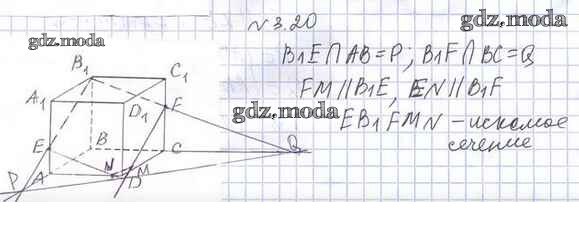 №3.20
gdz.moda
gdz.moda
B₁E∩AB=P; B₁F∩BC=Q
FM//B₁E, EN//B₁F
gdz.moda
EB₁FMN – искомое
сечение
B₁
C₁
A₁
F
D₁
E
B
C
Q
N
M
P
A
D